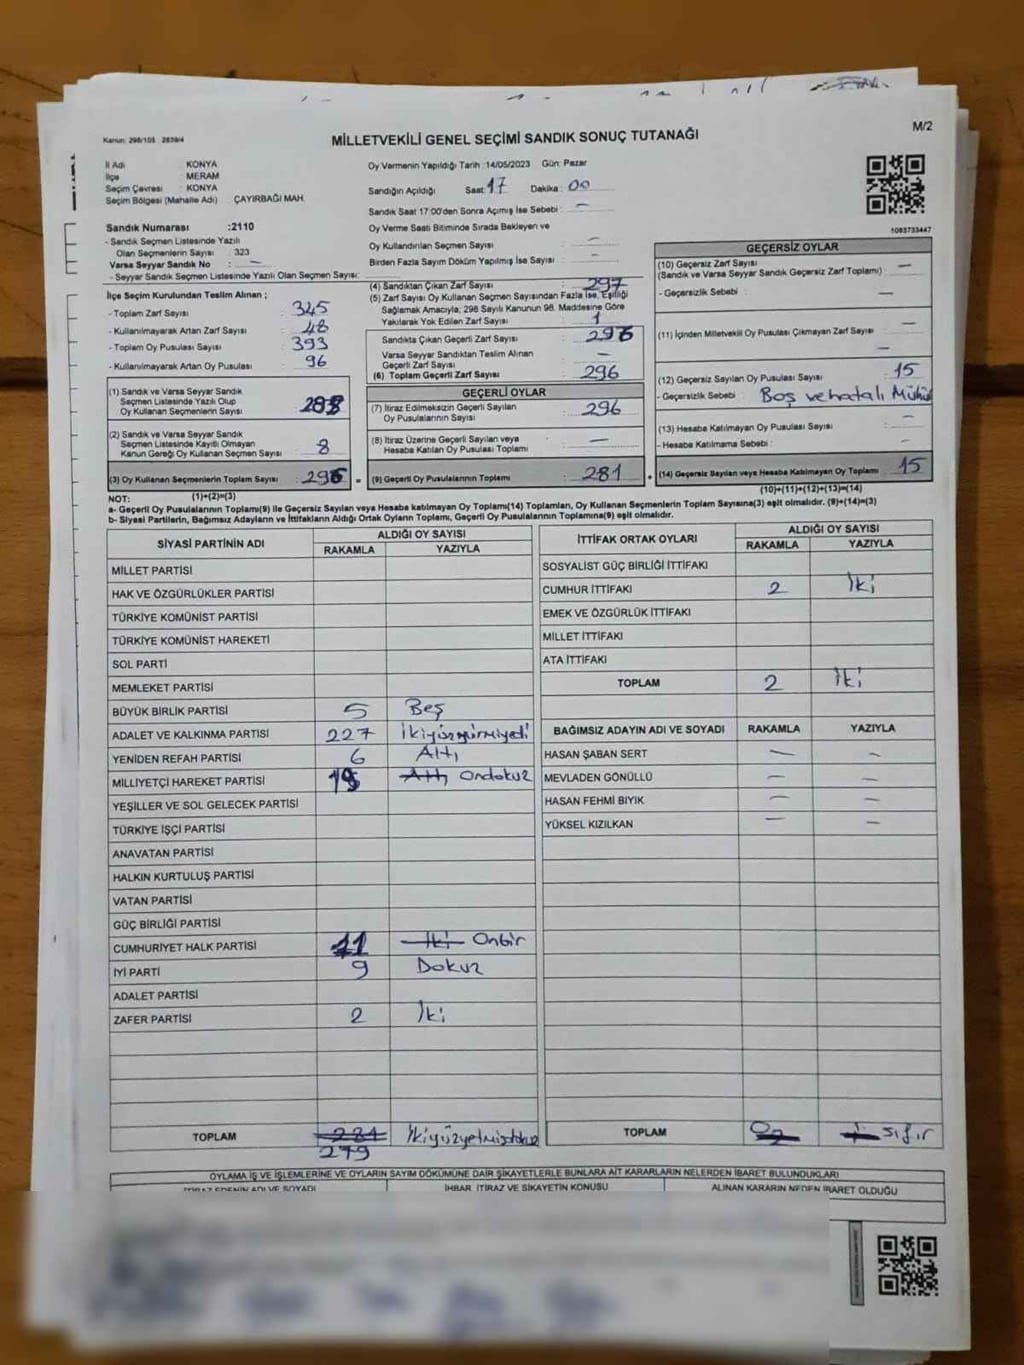 Kanun: 298/105 2839/4
MİLLETVEKİLİ GENEL SEÇİMİ SANDIK SONUÇ TUTANAĞI
M/2
İl Adı KONYA
İlçe MERAM
Seçim Çevresi : KONYA
Seçim Bölgesi (Mahalle Adı) ÇAYIRBAĞI MAH.
Oy Vermenin Yapıldığı Tarih :14/05/2023 Gün: Pazar
Sandığın Açıldığı Saat: 17 Dakika : 00
Sandık Saat 17:00'den Sonra Açımış İse Sebebi : —
Oy Verme Saati Bitiminde Sırada Bekleyen ve
Oy Kullandırılan Seçmen Sayısı : —
Birden Fazla Sayım Döküm Yapılmış İse Sayısı : —
1083733447
Sandık Numarası :2110
- Sandık Seçmen Listesinde Yazılı
Olan Seçmenlerin Sayısı : 323
Varsa Seyyar Sandık No : —
- Seyyar Sandık Seçmen Listesinde Yazılı Olan Seçmen Sayısı:
İlçe Seçim Kurulundan Teslim Alınan ;
- Toplam Zarf Sayısı : 345
- Kullanılmayarak Artan Zarf Sayısı : 48
- Toplam Oy Pusulası Sayısı : 393
- Kullanılmayarak Artan Oy Pusulası : 96
(1) Sandık ve Varsa Seyyar Sandık
Seçmen Listesinde Yazılı Olup
Oy Kullanan Seçmenlerin Sayısı : 288
(2) Sandık ve Varsa Seyyar Sandık
Seçmen Listesinde Kayıtlı Olmayan
Kanun Gereği Oy Kullanan Seçmen Sayısı : 8
(3) Oy Kullanan Seçmenlerin Toplam Sayısı : 296
(4) Sandıktan Çıkan Zarf Sayısı : 297
(5) Zarf Sayısı Oy Kullanan Seçmen Sayısından Fazla İse, Eşitliği
Sağlamak Amacıyla; 298 Sayılı Kanunun 98. Maddesine Göre
Yakılarak Yok Edilen Zarf Sayısı : 1
Sandıkta Çıkan Geçerli Zarf Sayısı : 296
Varsa Seyyar Sandıktan Teslim Alınan
Geçerli Zarf Sayısı : —
(6) Toplam Geçerli Zarf Sayısı : 296
GEÇERLİ OYLAR
(7) İtiraz Edilmeksizin Geçerli Sayılan
Oy Pusulalarının Sayısı : 296
(8) İtiraz Üzerine Geçerli Sayılan veya
Hesaba Katılan Oy Pusulası Toplamı : —
(9) Geçerli Oy Pusulalarının Toplamı : 281
GEÇERSİZ OYLAR
(10) Geçersiz Zarf Sayısı : —
(Sandık ve Varsa Seyyar Sandık Geçersiz Zarf Toplamı)
- Geçersizlik Sebebi : —
(11) İçinden Milletvekili Oy Pusulası Çıkmayan Zarf Sayısı : —
(12) Geçersiz Sayılan Oy Pusulası Sayısı : 15
- Geçersizlik Sebebi : Boş ve hatalı Mühür
(13) Hesaba Katılmayan Oy Pusulası Sayısı : —
- Hesaba Katılmama Sebebi : —
(14) Geçersiz Sayılan veya Hesaba Katılmayan Oy Toplamı : 15
NOT: (1)+(2)=(3)
(10)+(11)+(12)+(13)=(14)
a- Geçerli Oy Pusulalarının Toplamı(9) ile Geçersiz Sayılan veya Hesaba katılmayan Oy Toplamı(14) Toplamları, Oy Kullanan Seçmenlerin Toplam Sayısına(3) eşit olmalıdır. (9)+(14)=(3)
b- Siyasi Partilerin, Bağımsız Adayların ve İttifakların Aldığı Ortak Oyların Toplamı, Geçerli Oy Pusulalarının Toplamına(9) eşit olmalıdır.
SİYASİ PARTİNİN ADI ALDIĞI OY SAYISI
RAKAMLA YAZIYLA
MİLLET PARTİSİ
HAK VE ÖZGÜRLÜKLER PARTİSİ
TÜRKİYE KOMÜNİST PARTİSİ
TÜRKİYE KOMÜNİST HAREKETİ
SOL PARTİ
MEMLEKET PARTİSİ
BÜYÜK BİRLİK PARTİSİ 5 Beş
ADALET VE KALKINMA PARTİSİ 227 İkiyüzyirmiyedi
YENİDEN REFAH PARTİSİ 6 Altı
MİLLİYETÇİ HAREKET PARTİSİ 19 Altı Ondokuz
YEŞİLLER VE SOL GELECEK PARTİSİ
TÜRKİYE İŞÇİ PARTİSİ
ANAVATAN PARTİSİ
HALKIN KURTULUŞ PARTİSİ
VATAN PARTİSİ
GÜÇ BİRLİĞİ PARTİSİ
CUMHURİYET HALK PARTİSİ 11 İki Onbir
İYİ PARTİ 9 Dokuz
ADALET PARTİSİ
ZAFER PARTİSİ 2 İki
TOPLAM 281 İkiyüzyetmişdokuz
279
İTTİFAK ORTAK OYLARI ALDIĞI OY SAYISI
RAKAMLA YAZIYLA
SOSYALİST GÜÇ BİRLİĞİ İTTİFAKI
CUMHUR İTTİFAKI 2 İki
EMEK VE ÖZGÜRLÜK İTTİFAKI
MİLLET İTTİFAKI
ATA İTTİFAKI
TOPLAM 2 İki
BAĞIMSIZ ADAYIN ADI VE SOYADI RAKAMLA YAZIYLA
HASAN ŞABAN SERT — —
MEVLADEN GÖNÜLLÜ — —
HASAN FEHMİ BIYIK — —
YÜKSEL KIZILKAN — —
TOPLAM sıfır
OYLAMA İŞ VE İŞLEMLERİNE VE OYLARIN SAYIM DÖKÜMÜNE DAİR ŞİKAYETLERLE BUNLARA AİT KARARLARIN NELERDEN İBARET BULUNDUKLARI
İTİRAZ EDENİN ADI VE SOYADI İHBAR, İTİRAZ VE ŞİKAYETİN KONUSU ALINAN KARARIN NEDEN İBARET OLDUĞU